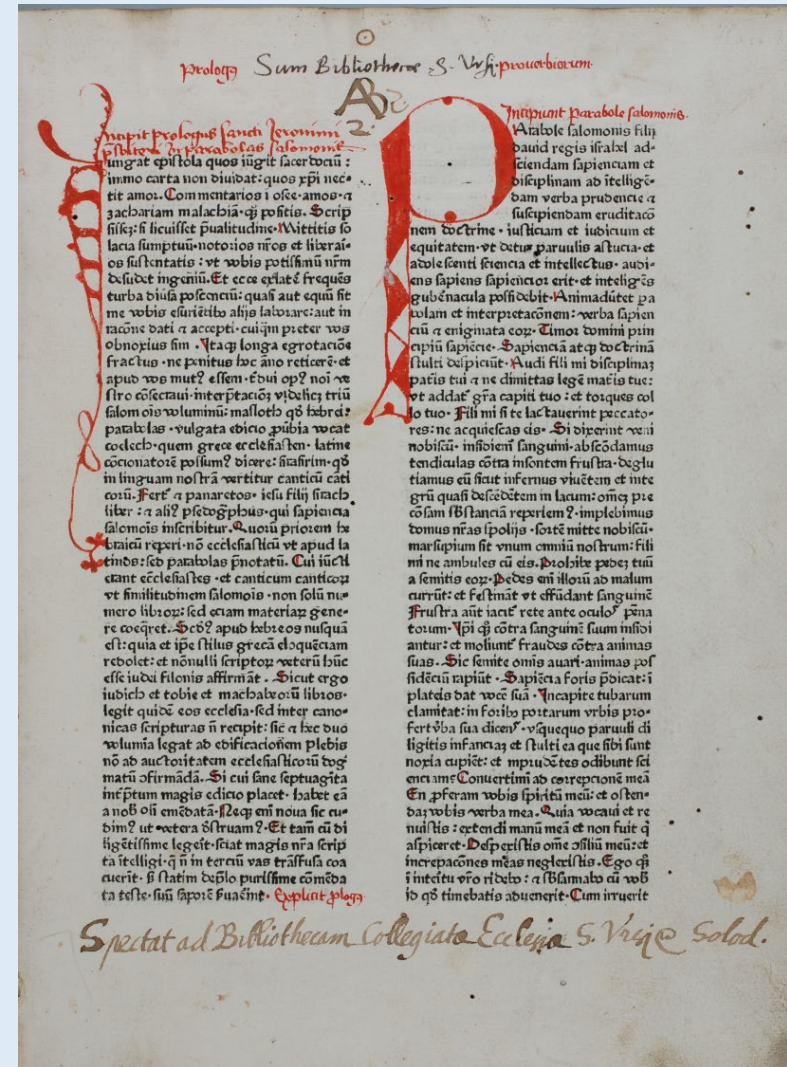 Prologus Sum Bibliothecæ S. Ursi proverbiorum
Incipit Prologus sancti Jeronimi
p̄sbiteri in parabolas salomonis
Iungat epistola quos iūgit sacerdociū :
immo carta non diuidat: quos xp̄i nec⸗
tit amor. Commentarios ī osee·amos·⁊
zachariam malachiā·qꝫ positis. Scrip
sissē: si licuisset p̄ualitudine·Mittitis so
lacia sumptuū·notarios nr̄os et librari⸗
os sustentatis : vt vobis potissimū nr̄m
desudet ingeniū. Et ecce exlatē frequēs
turba diūsa poscenciū: quasi aut equū sit
me vobis esuriētibꝫ alijs laborare: aut in
racōne dati ⁊ accepti·cuiq̄m preter vos
obnoxius sim . Itaqꝫ longa egrotaciōe
fractus · ne penitus hoc āno reticerē· et
apud vos mut? essem·t̄dui op? noī ve
stro cōsecraui·interp̄tacioꝫ vꝫdelicꝫ triū
salomōis voluminū: masloth qđ hebrei?
parabolas · vulgata edicio ꝓūbia vocat
coelech·quem grece ecclesiasten· latine
cōcionatorē possum? dicere: sirasirim·qđ
in linguam nostrā vertitur canticū cāti
corū. Fert' ⁊ panaretos· iesu filij sirach
liber : ⁊ ali? psedogͣphus·qui sapiencia
salomōis inscribitur. Quorū priorem he
braicū reperi·nō ecclesiasticū vt apud la
tinos: sed parabolas p̄notatū. Cui iūcti
erant ecc̄lesiastes · et canticum canticoꝝ
vt similitudinem salomōis ·non solū nu⸗
mero libroꝝ: sed eciam materiaꝝ gene⸗
re coeq̄ret. Scd'? apud hebreos nusquā
est: quia et ip̄e stilus grecā eloquēciam
redolet: et nōnulli scriptoꝝ veterū hūc
esse iudei filonis affirmāt . Sicut ergo
iudich et tobie et machabeorū libros·
legit quidē eos ecclesia·sed inter cano⸗
nicas scripturas n̄ recipit: sic ⁊ hec duo
volumīa legat ad edificacionem plebis
nō ad auctoritatem ecclesiasticorū dog'
matū ɔfirmādā. Si cui sane septuagīta
int̄p̄tum magis edicio placet· habet eā
a nob' oli emēdatā·Neqꝫ em̄ noua sic cu⸗
dim? ut vetera đstruam?·Et tam̄ cū di
ligētissime legeit·sciat magis nr̄a scrip
ta ītelligi·q̄ n̄ in terciū vas trāsfusa coa
cuerīt· sꝫ statim de p̄lo purissime cōmēda
ta teste·suū saporē ƥuaēīnt· Explicit ꝓlogꝰ
Incipiunt Parabole salomonis·
Parabole salomonis filij
dauid regis israhel ad⸗
sciendam sapienciam et
disciplinam ad ītelligē⸗
dam verba prudencie ⁊
suscipiendam eruditacō
nem doctrine · iusticiam et iudicium et
equitatem· vt detur paruulis astucia· et
adolescenti sciencia et intellectus· audi⸗
ens sapiens sapiencior erit·et inteligēs
gubēnacula possidebit·Animadūtet pa
bolam et interpretacōnem: verba sapien
ciū ⁊ enigmata eoꝝ· Timor domini prin
cipiū sapiēcie· Sapienciā atqꝫ doctrinā
stulti despiciūt · Audi fili mi disciplinaꝫ
pat̄is tui ⁊ ne dimittas legē mat̄is tue:
vt addat' gr̄a capiti tuo: et torques col
lo tuo· Fili mi si te lactauerint peccato⸗
res: ne acquiescas eis· Si dixerint veni
nobiscū· insidiem' sanguini·abscōdamus
tendiculas cōtra insontem frustra·deglu
tiamus eū sicut infernus viuētem et inte
grū quasi descēdētem in lacum: omēꝫ pre
cōsam s'bstanciā reperiem?·implebimus
domus nr̄as spolijs ·sortē mitte nobiscū·
marsupium sit vnum omniū nostrum: fili
mi ne ambules cū eis. Prohibe pedeꝫ tuū
a semitis eoꝝ·Pedes em̄ illorū ad malum
currūt: et festināt vt effūdant sanguinē
Frustra aūt iacit' rete ante oculos pēna
torum· Ip̄i qꝫ cōtra sanguinē suum insidi
antur: et moliunt' fraudes cōtra animas
suas. Sic semite omīs auari·animas pos
sidēciū rapiūt · Sapiēcia foris p̄dicat: ī
plateis dat vocē suā · Incapite turbarum
clamitat: in foribꝫ portarum vrbis pro⸗
fert v̄ba sua dicens'· vsquequo paruuli di
ligitis infanciaꝫ et stulti ea que sibi sunt
noxia cupiēt: et imprudētes odibunt sci
enciam: Conuertimī ad correpcionē meā
En ꝓferam vobis spiritū meū: et osten⸗
daꝫ vobis verba mea. Quia vocaui et re
nuistis : extendi manū meā et non fuit q̄
aspiceret· Despexistis om̄e ɔsiliū meū: et
increpacōnes mēas neglexistis. Ego qꝫ
ī intētu vr̄o ridebo: ⁊ s'bsannabo cū vob'
id qđ timebatis aduenerit· Cum irruerit
Spectat ad Bibliothecam Collegiatæ Ecclesiæ S. Ursi Solod.